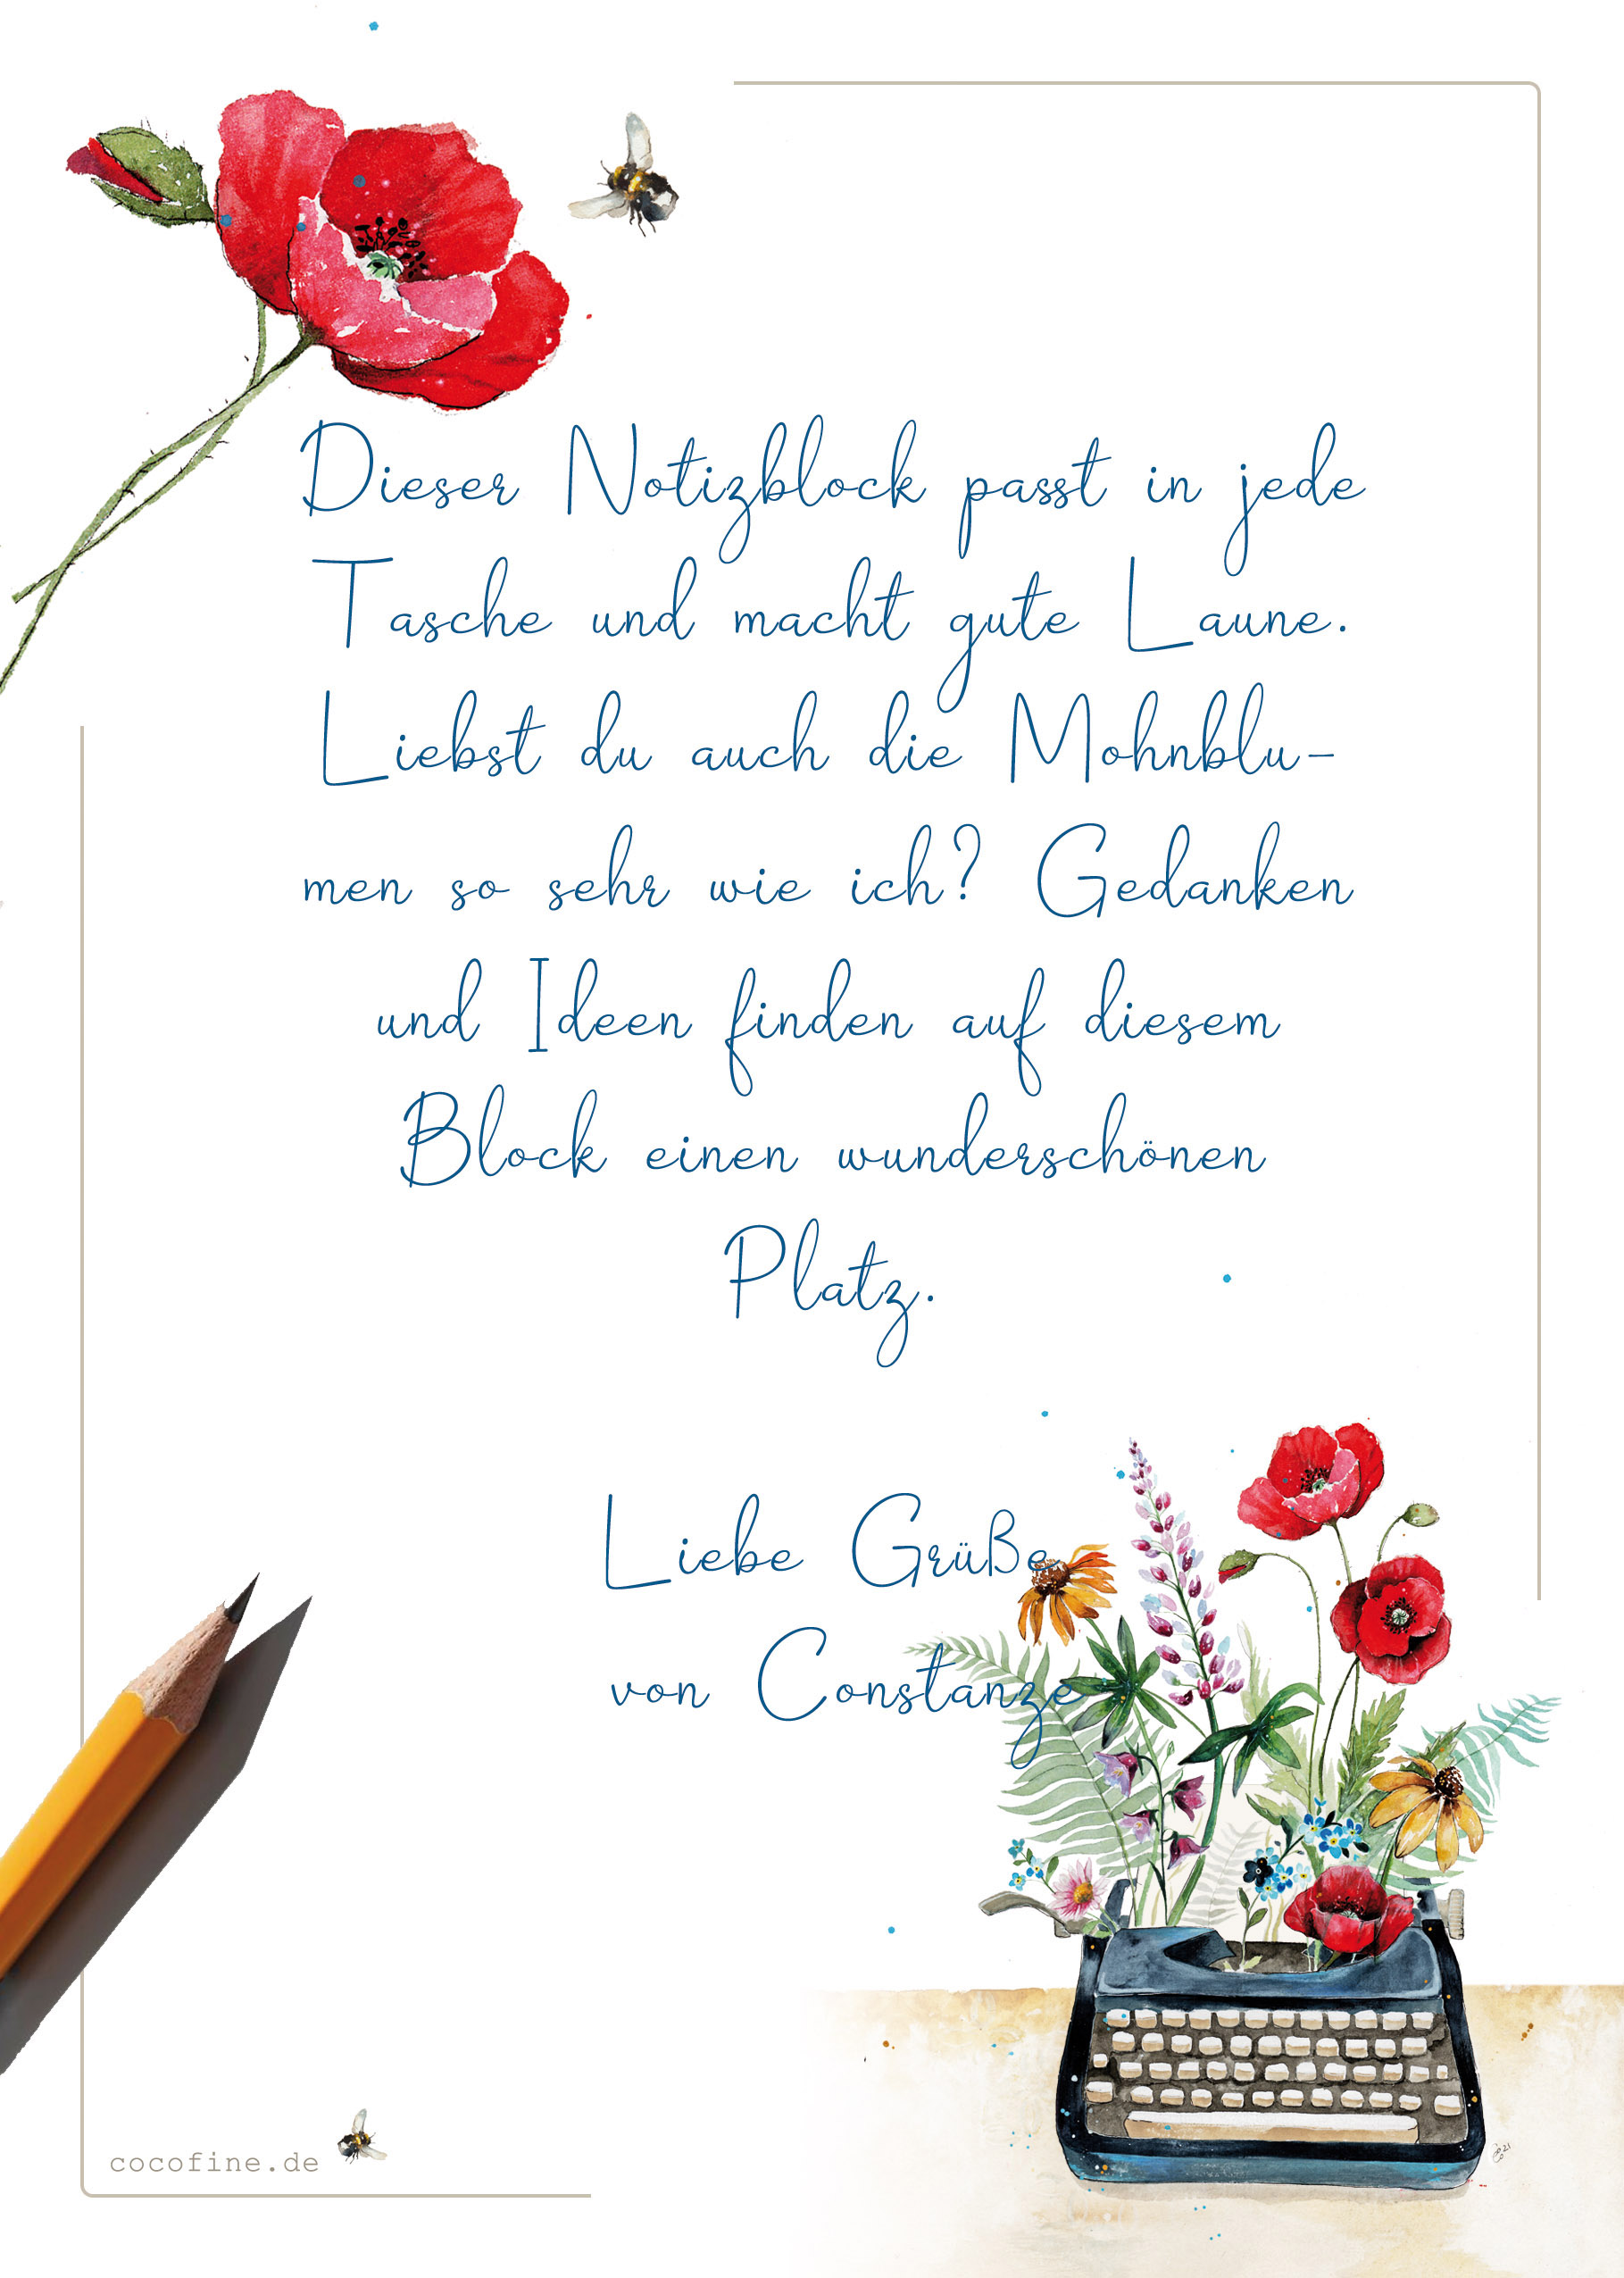 Dieser Notizblock passt in jede
Tasche und macht gute Laune.
Liebst du auch die Mohnblu-
men so sehr wie ich? Gedanken
und Ideen finden auf diesem
Block einen wunderschönen
Platz.
Liebe Grüße
von Constanze
cocofine.de